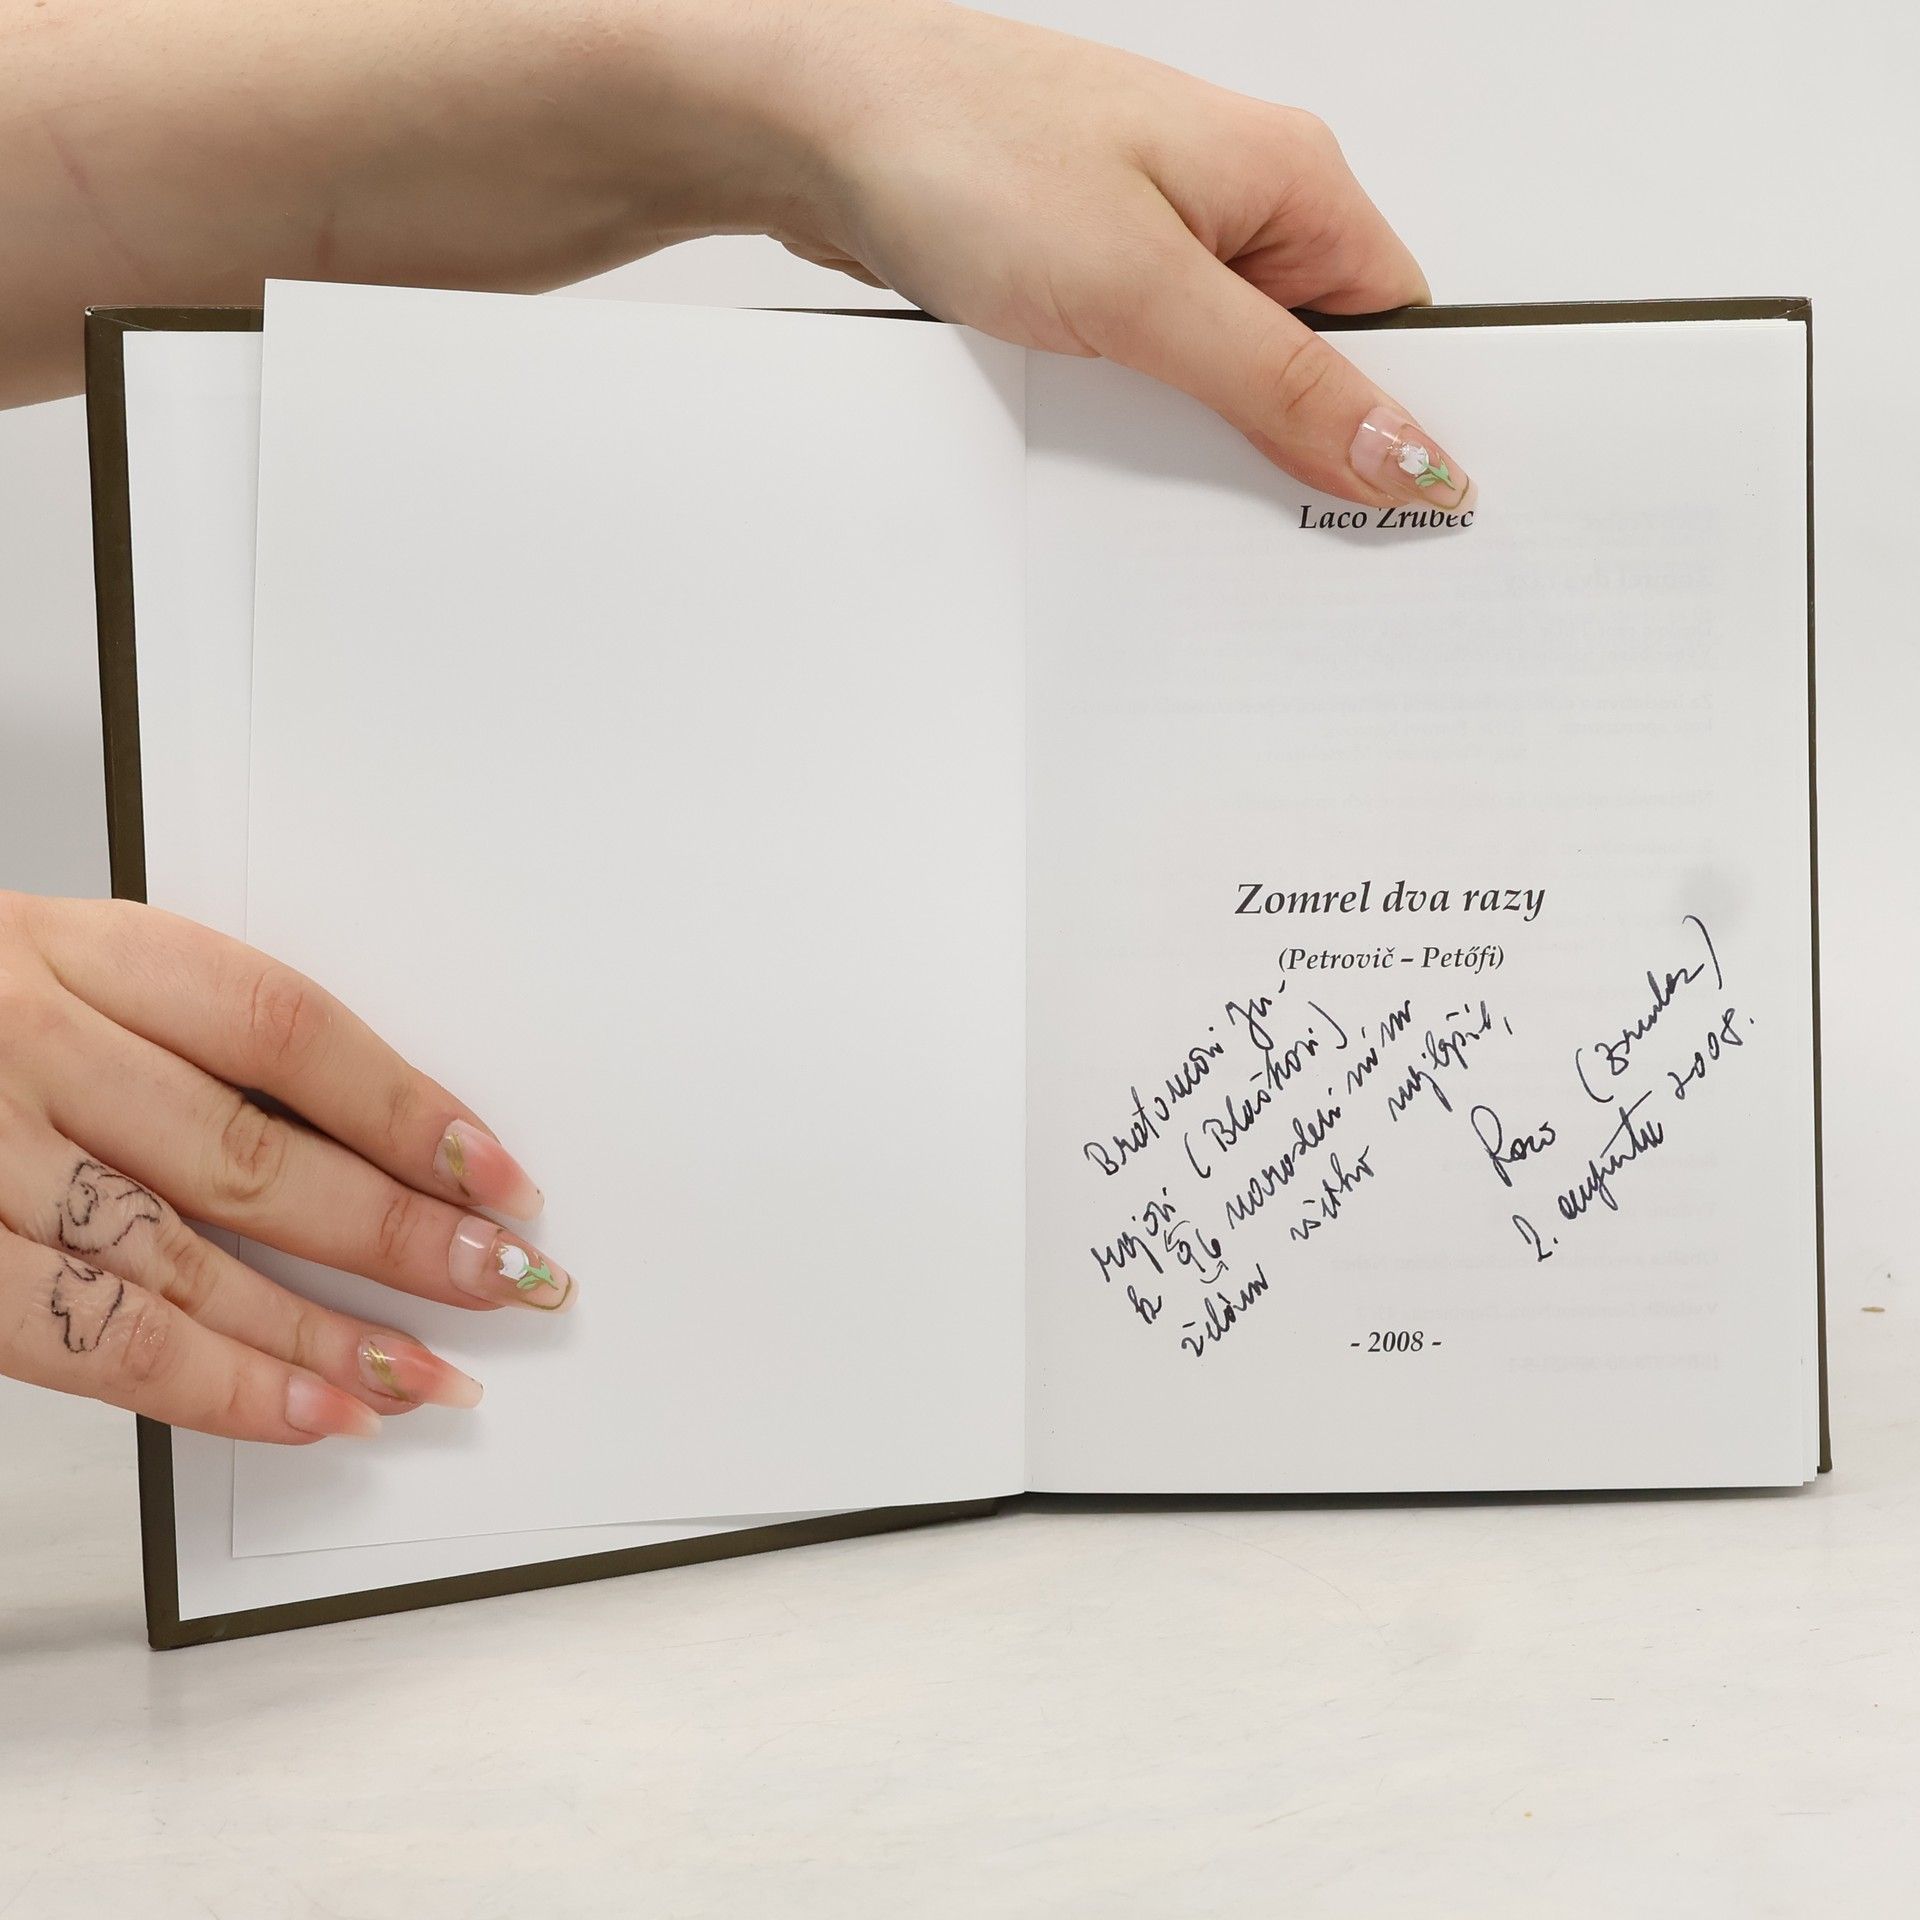 Laco Zrubec
Zomrel dva razy
(Petrovič – Petőfi)
Braťoucovi Ju-
(Blaškovi)
k 96 narodeninám
želám všetko najlepšie,
Laco (Zrubec)
2. augusta 2008.
- 2008 -